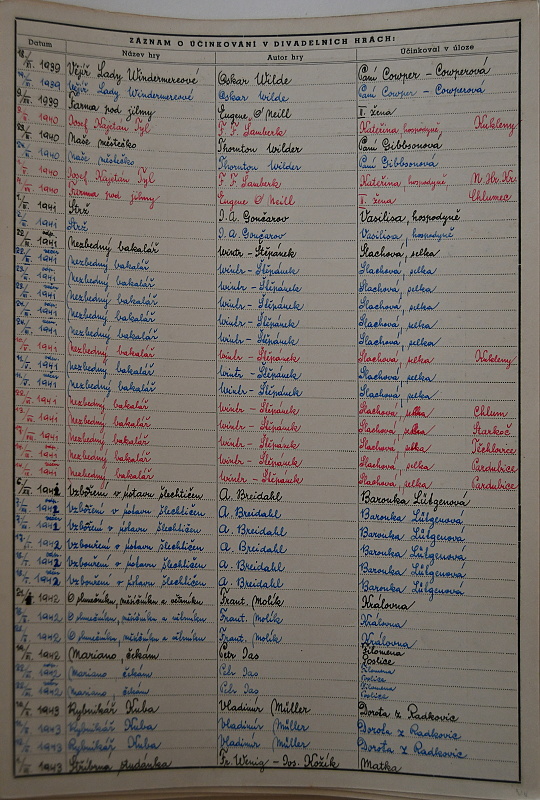 ZÁZNAM O ÚČINKOVÁNÍ V DIVADELNÍCH HRÁCH:
Datum Název hry Autor hry Účinkoval v úloze
1939 Vějíř Lady Windermereové Oskar Wilde Paní Cowper - Cowperová
1939 Vějíř Lady Windermereové Oskar Wilde Paní Cowper - Cowperová
1939 Farma pod jilmy Eugene O'Neill II. žena
1940 Josef Kajetán Tyl F. F. Šamberk Kateřina hospodyně Kukleny
1940 Naše městečko Thornton Wilder Paní Gibbsonová
1940 Naše městečko Thornton Wilder Paní Gibbsonová
1940 Josef Kajetán Tyl F. F. Šamberk Kateřina hospodyně N. Hr. Kr.
1940 Farma pod jilmy Eugene O'Neill II. žena Chlumec
1941 Strž I. A. Gončarov Vasilisa, hospodyně
1941 Strž I. A. Gončarov Vasilisa, hospodyně
1941 Nezbedný bakalář Wintr - Štěpánek Šlachová, pelka
1941 Nezbedný bakalář Wintr - Štěpánek Šlachová, pelka
1941 Nezbedný bakalář Wintr - Štěpánek Šlachová, pelka
1941 Nezbedný bakalář Wintr - Štěpánek Šlachová, pelka
1941 Nezbedný bakalář Wintr - Štěpánek Šlachová, pelka
1941 Nezbedný bakalář Wintr - Štěpánek Šlachová, pelka
1941 Nezbedný bakalář Wintr - Štěpánek Šlachová, pelka Kukleny
1941 Nezbedný bakalář Wintr - Štěpánek Šlachová, pelka
1941 Nezbedný bakalář Wintr - Štěpánek Šlachová, pelka
1941 Nezbedný bakalář Wintr - Štěpánek Šlachová, pelka Chlum
1941 Nezbedný bakalář Wintr - Štěpánek Šlachová, pelka Starkoč
1941 Nezbedný bakalář Wintr - Štěpánek Šlachová, pelka Třechovice
1941 Nezbedný bakalář Wintr - Štěpánek Šlachová, pelka Pardubice
1941 Nezbedný bakalář Wintr - Štěpánek Šlachová, pelka Pardubice
1942 Vzbouření v ústavu šlechtičen A. Breidahl Baronka Lütgenová
1942 Vzbouření v ústavu šlechtičen A. Breidahl Baronka Lütgenová
1942 Vzbouření v ústavu šlechtičen A. Breidahl Baronka Lütgenová
1942 Vzbouření v ústavu šlechtičen A. Breidahl Baronka Lütgenová
1942 Vzbouření v ústavu šlechtičen A. Breidahl Baronka Lütgenová
1942 Vzbouření v ústavu šlechtičen A. Breidahl Baronka Lütgenová
1942 O slunečníku, měsíčníku a větrníku Frant. Molík Královna
1942 O slunečníku, měsíčníku a větrníku Frant. Molík Královna
1942 O slunečníku, měsíčníku a větrníku Frant. Molík Královna
1942 Mariano, čekám Petr Jas Filomena Poslice
1942 Mariano, čekám Petr Jas Filomena Poslice
1942 Mariano, čekám Petr Jas Filomena Poslice
1943 Rybnikář Kuba Vladimír Müller Dorota z Radkovic
1943 Rybnikář Kuba Vladimír Müller Dorota z Radkovic
1943 Rybnikář Kuba Vladimír Müller Dorota z Radkovic
1943 Stříbrná studánka Fr. Wenig - Jos. Kožík Matka